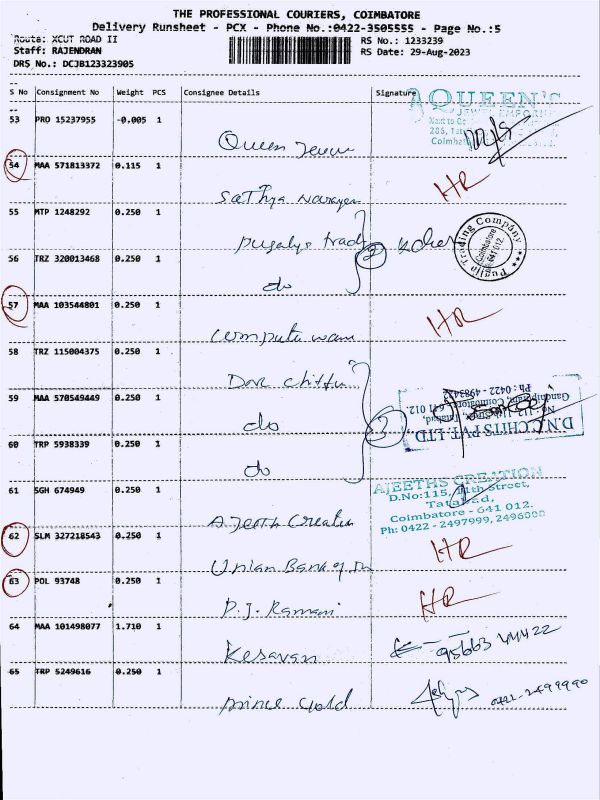 THE PROFESSIONAL COURIERS, COIMBATORE
Delivery Runsheet - PCX - Phone No.:0422-3505555 - Page No.:5
Route: XCUT ROAD II
RS No.: 1233239
Staff: RAJENDRAN
RS Date: 29-Aug-2023
DRS No.: DCJB123323905
S No Consignment No Weight PCS Consignee Details Signature
QUEEN'S
JEWEL EMPORIUM
53 PRO 15237955 -0.005 1
Queen Jewe
54 MAA 571813372 0.115 1
HR
Sathya Narayan
55 MTP 1248292 0.250 1
Pugalys Trad
2
Puglia Trading Company
Coimbatore
641 012.
56 TRZ 320013468 0.250 1
do
57 MAA 103544801 0.250 1
HR
computer ware
58 TRZ 115004375 0.250 1
DNC Chitfu
59 MAA 570549449 0.250 1
do
3
D.N.C.CHITS PVT. LTD.
No: 112, 11th Street, Tatabad,
Gandhipuram, Coimbatore - 641 012.
Ph : 0422 - 4983422
60 TRP 5938339 0.250 1
do
61 SGH 674949 0.250 1
AJEETHS CREATION
D.No:115, 11th Street,
Tatabad,
Coimbatore - 641 012.
Ph: 0422 - 2497999, 2496000
Ajeeth Creation
62 SLM 327218543 0.250 1
HR
Union Bank of In
63 POL 93748 0.250 1
HR
P.J. Ramani
64 MAA 101498077 1.710 1
95663 44422
Kesavan
65 TRP 5249616 0.250 1
0421-2499990
prince Gold